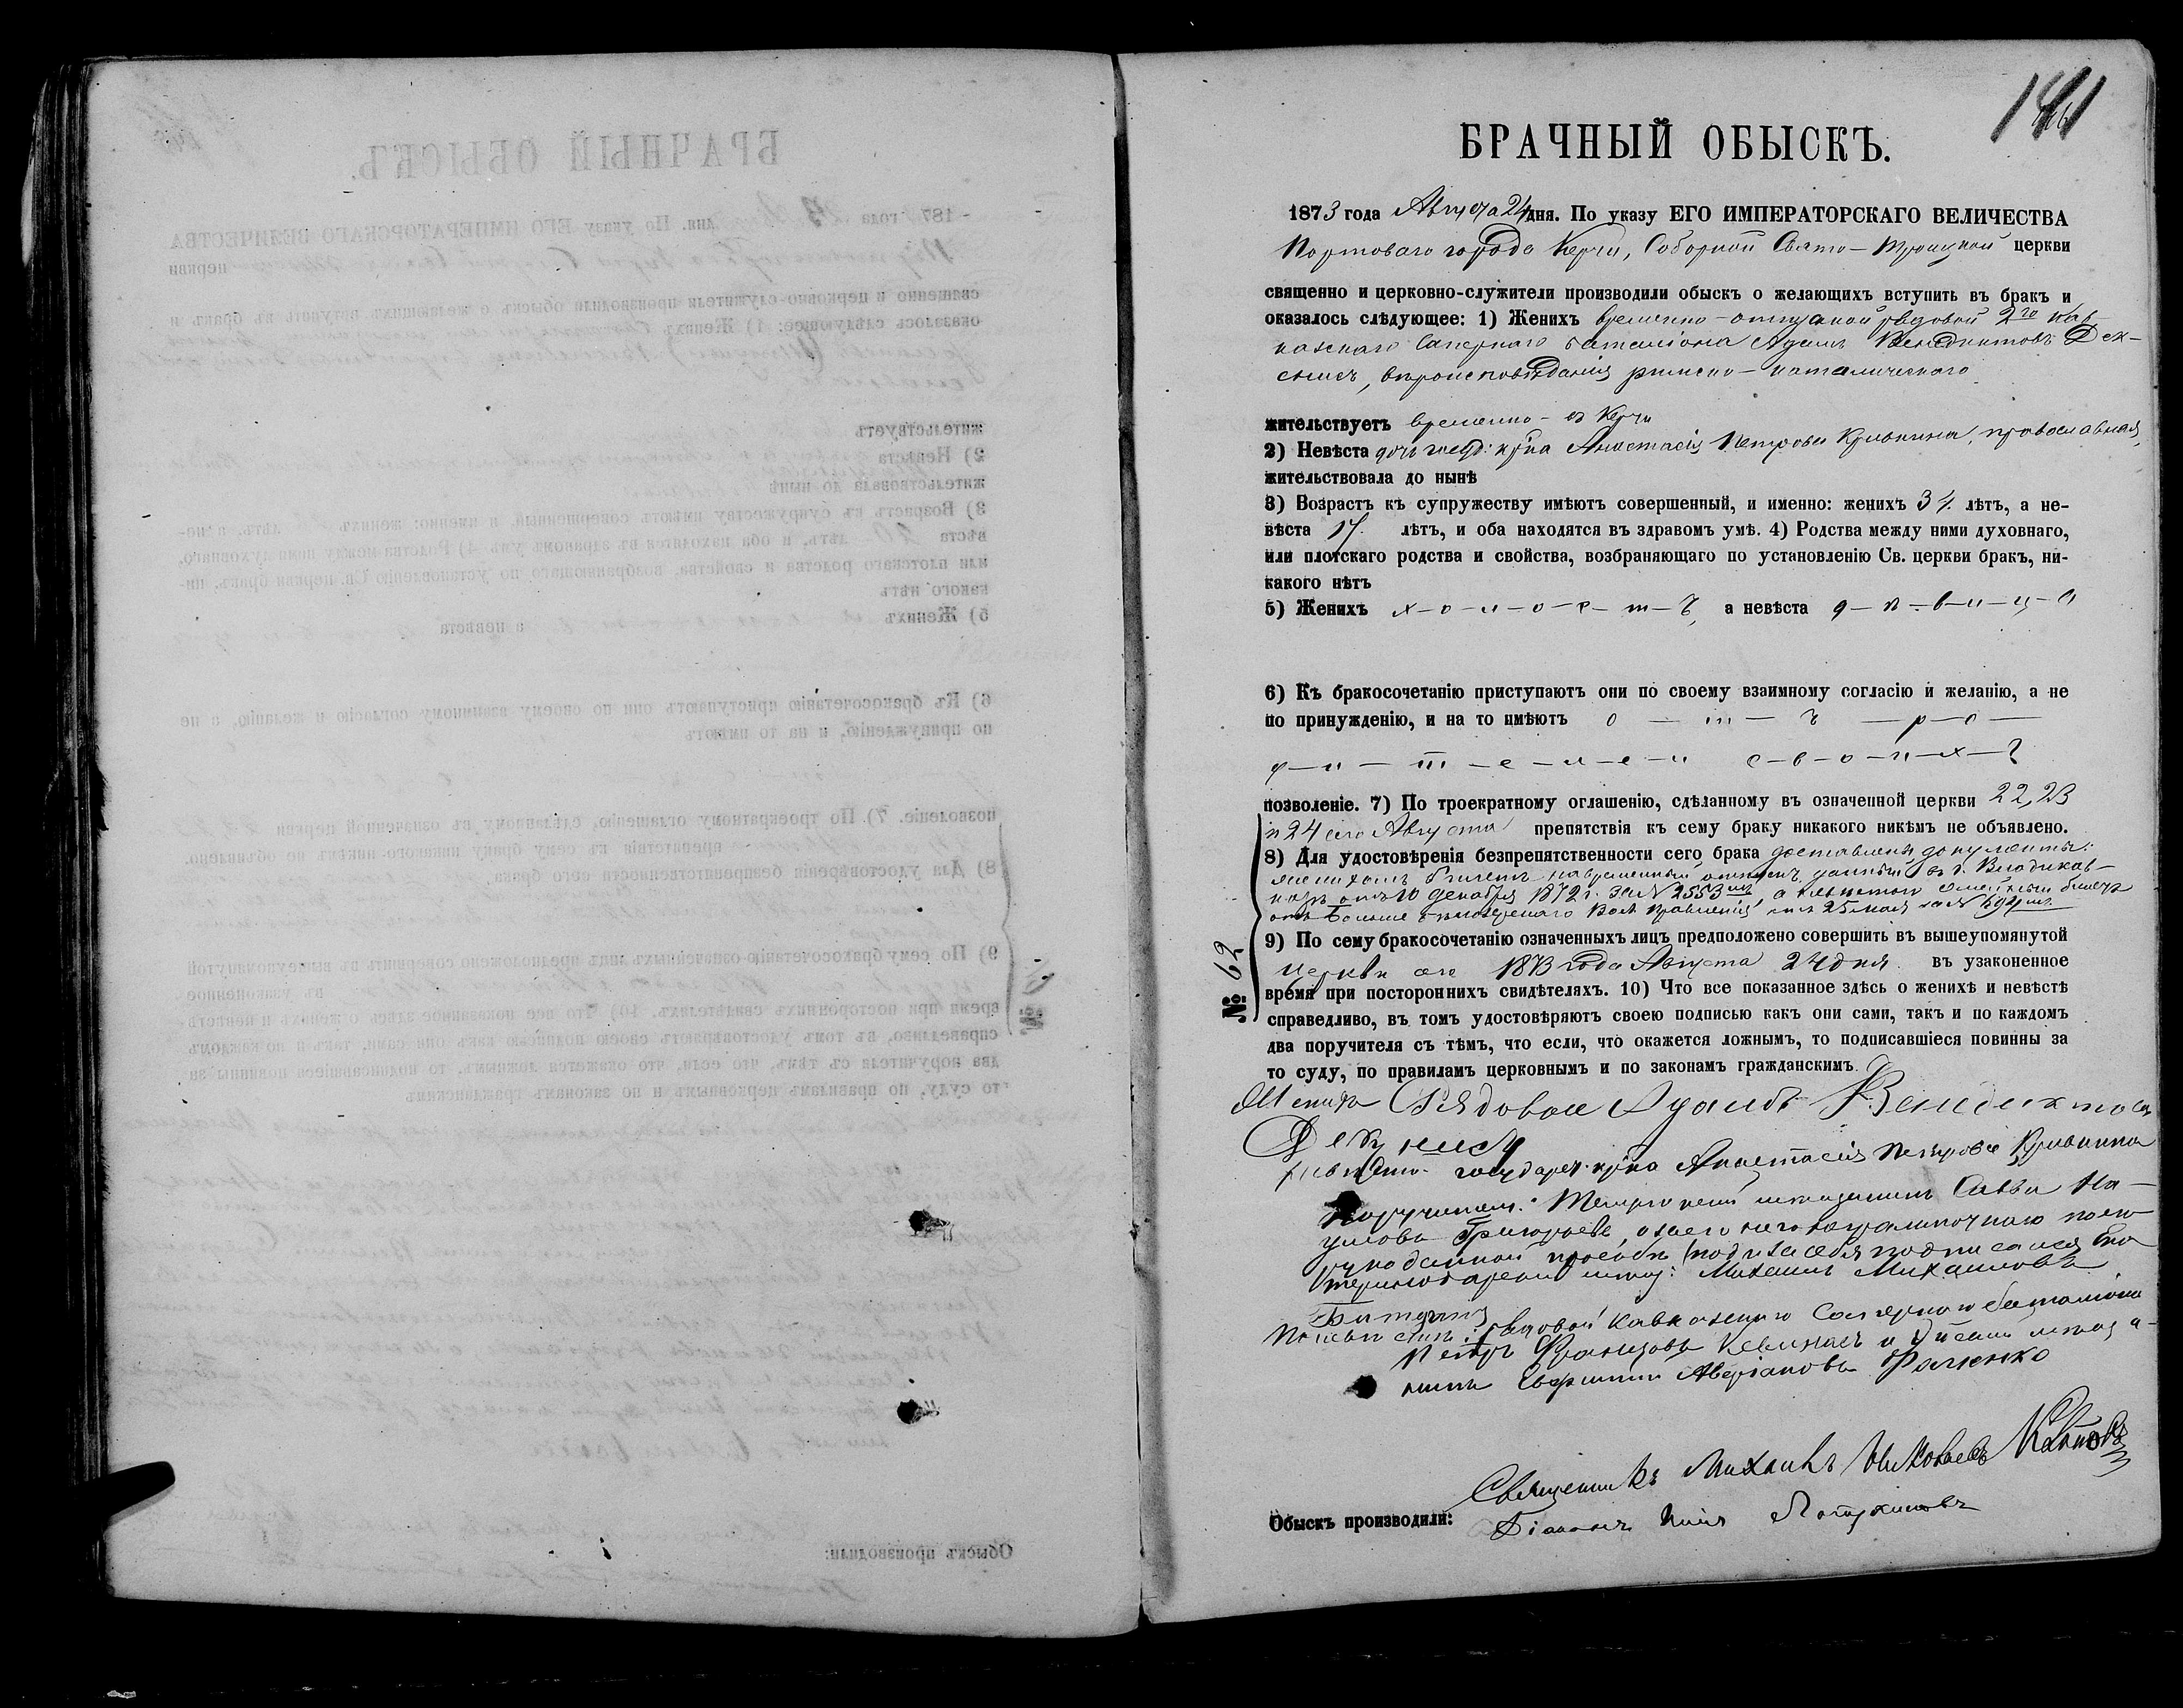 141
БРАЧНЫЙ ОБЫСКЪ.
1873 года Августа 24 дня. По указу ЕГО ИМПЕРАТОРСКАГО ВЕЛИЧЕСТВА
Портоваго города Керчи, Соборной Свято-Троицкой церкви
священно и церковно-служители производили обыскъ о желающихъ вступить въ бракъ и
оказалось слѣдующее: 1) Женихъ временно-отпускной рядовой 2го Кав-
казскаго Сапернаго баталіона Адамъ Венедиктовъ
вѣроисповѣданія римско-католическаго
жительствуетъ временно - въ Керчи
2) Невѣста дочь госуд: кр-на Анастасія Петрова Кривкина, православная,
жительствовала до нынѣ
3) Возрастъ къ супружеству имѣютъ совершенный, и именно: женихъ 34 лѣтъ, а не-
вѣста 17 лѣтъ, и оба находятся въ здравомъ умѣ. 4) Родства между ними духовнаго,
или плотскаго родства и свойства, возбраняющаго по установленію Св. церкви бракъ, ни-
какого нѣтъ
5) Женихъ х-о-л-о-с-т-ъ, а невѣста д-ѣ-в-и-ц-а
6) Къ бракосочетанію приступаютъ они по своему взаимному согласію и желанію, а не
по принужденію, и на то имѣютъ о — т — ъ — р-о —
д-и-т-е-л-е-й с-в-о-и-х-ъ
позволеніе. 7) По троекратному оглашенію, сдѣланному въ означенной церкви 22, 23
и 24 сего Августа препятствія къ сему браку никакого никѣмъ не объявлено.
8) Для удостовѣренія безпрепятственности сего брака доставлены документы:
женихомъ билетъ на временный отпускъ данный въ г. Владикав-
казѣ отъ 10 декабря 1872 г. за № 2553мъ, а невѣстою семейный билетъ
отъ Волос. Правленія отъ 25 мая за №
9) По сему бракосочетанію означенныхъ лицъ предположено совершить въ вышеупомянутой
церкви сего 1873 года Августа 24 дня въ узаконенное
время при постороннихъ свидѣтеляхъ. 10) Что все показанное здѣсь о женихѣ и невѣстѣ
справедливо, въ томъ удостовѣряютъ своею подписью какъ они сами, такъ и по каждомъ
два поручителя съ тѣмъ, что если, что окажется ложнымъ, то подписавшіеся повинны за
то суду, по правиламъ церковнымъ и по законамъ гражданскимъ.
№ 62
Рядовой Адамъ Венидиктовъ
невѣста государ. кр-на Анастасія Петрова Кривкина
Поручители: мѣщанинъ Савва На-
умовъ Григорьевъ, а за его неграмотного по его
рукоданной просьбѣ и за себя подписался
мѣщ: Михаилъ Михаиловъ
По невѣстѣ: рядовой Кавказскаго Сапернаго баталіона
Петръ Францовъ мѣща-
нинъ Аверіановъ
Священникъ Михаилъ Николаевъ
Обыскъ производили: